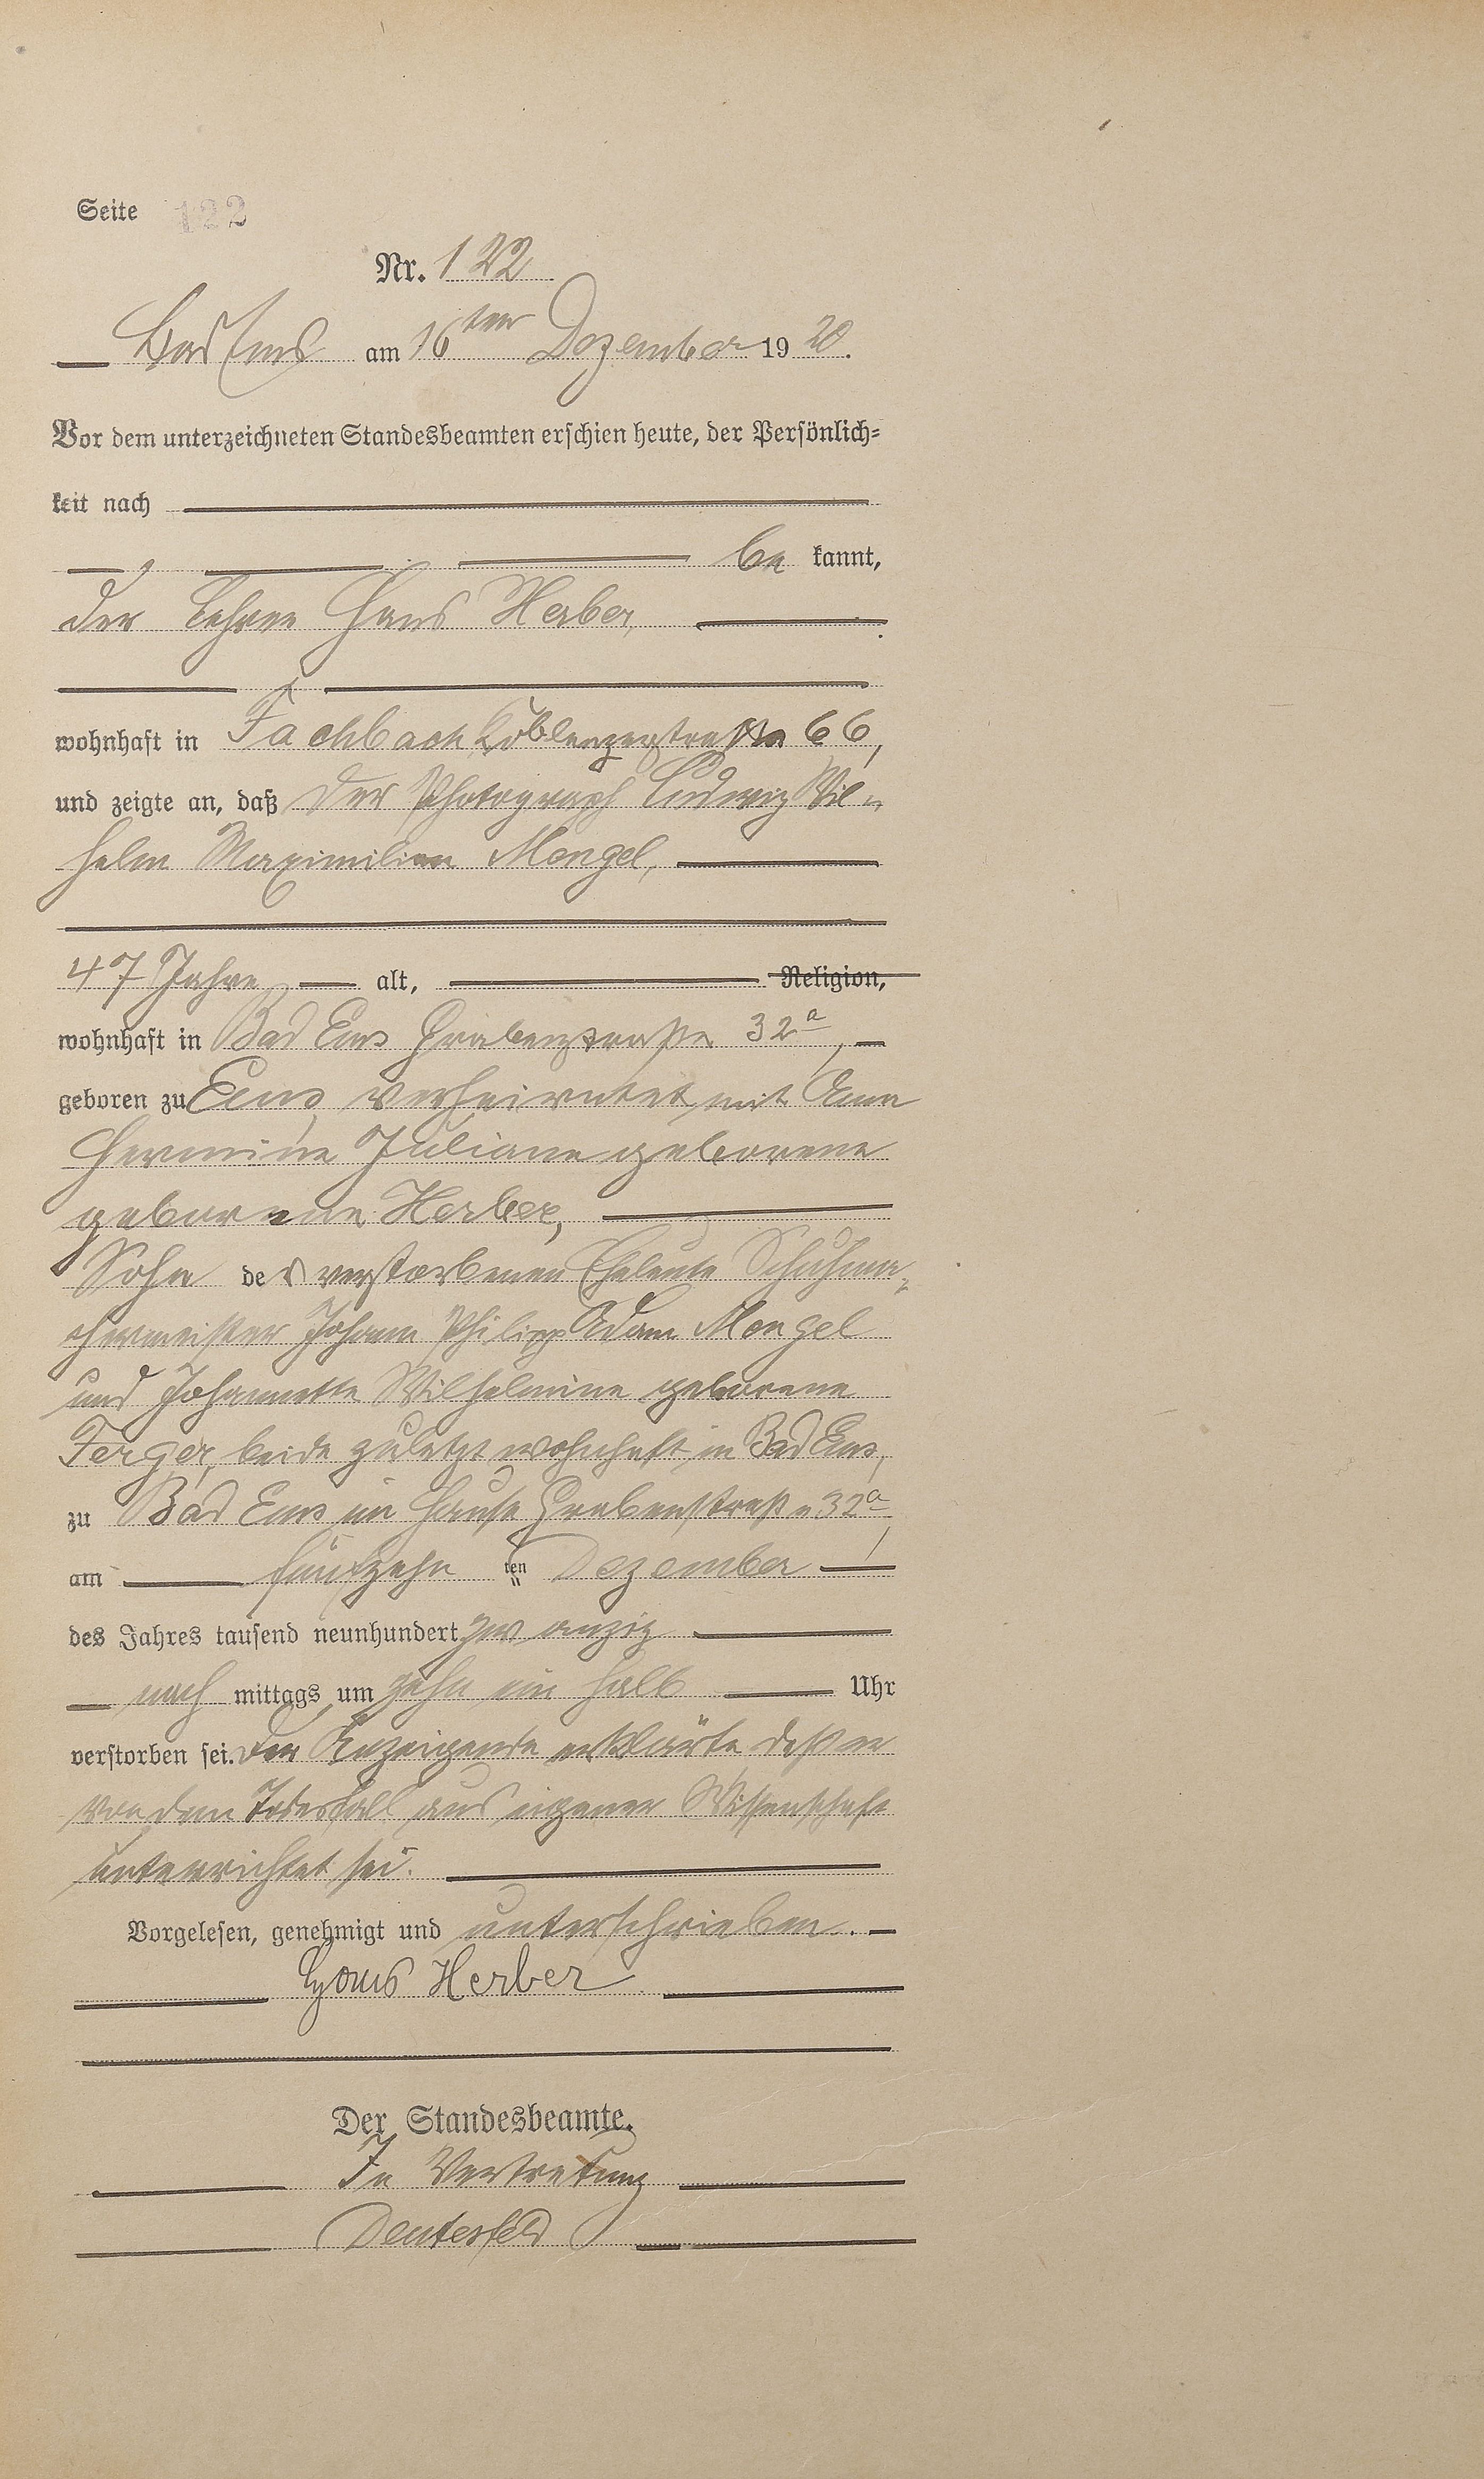 Seite 122
Nr. 122
Bad Ems am 16ten Dezember 1920.
Vor dem unterzeichneten Standesbeamten erschien heute, der Persönlich-
keit nach
be kannt,
der Lehrer Hans Herber,
wohnhaft in Fachbach Koblenzerstraße 66,
und zeigte an, daß der Photograph Ludwig Wil-
helm Maximilian Mengel,
47 Jahre alt, Religion,
wohnhaft in Bad Ems Grabenstraße 32a,
geboren zu Ems, verheiratet mit Anna
Hermine Juliane geborene
geborene Herber,
Sohn der verstorbenen Eheleute Schuhma-
chermeister Johann Philipp Adam Mengel
und Johannette Wilhelmine geborene
Ferger, beide zuletzt wohnhaft in Bad Ems,
zu Bad Ems im Hause Grabenstraße 32a
am fünfzehn ten Dezember
des Jahres tausend neunhundert zwanzig
nach mittags um zehn ein halb Uhr
verstorben sei. Der Anzeigende erklärte, daß er
von dem Todesfall aus eigener Wissenschaft
unterrichtet sei.
Vorgelesen, genehmigt und unterschrieben.
Hans Herber
Der Standesbeamte.
In Vertretung